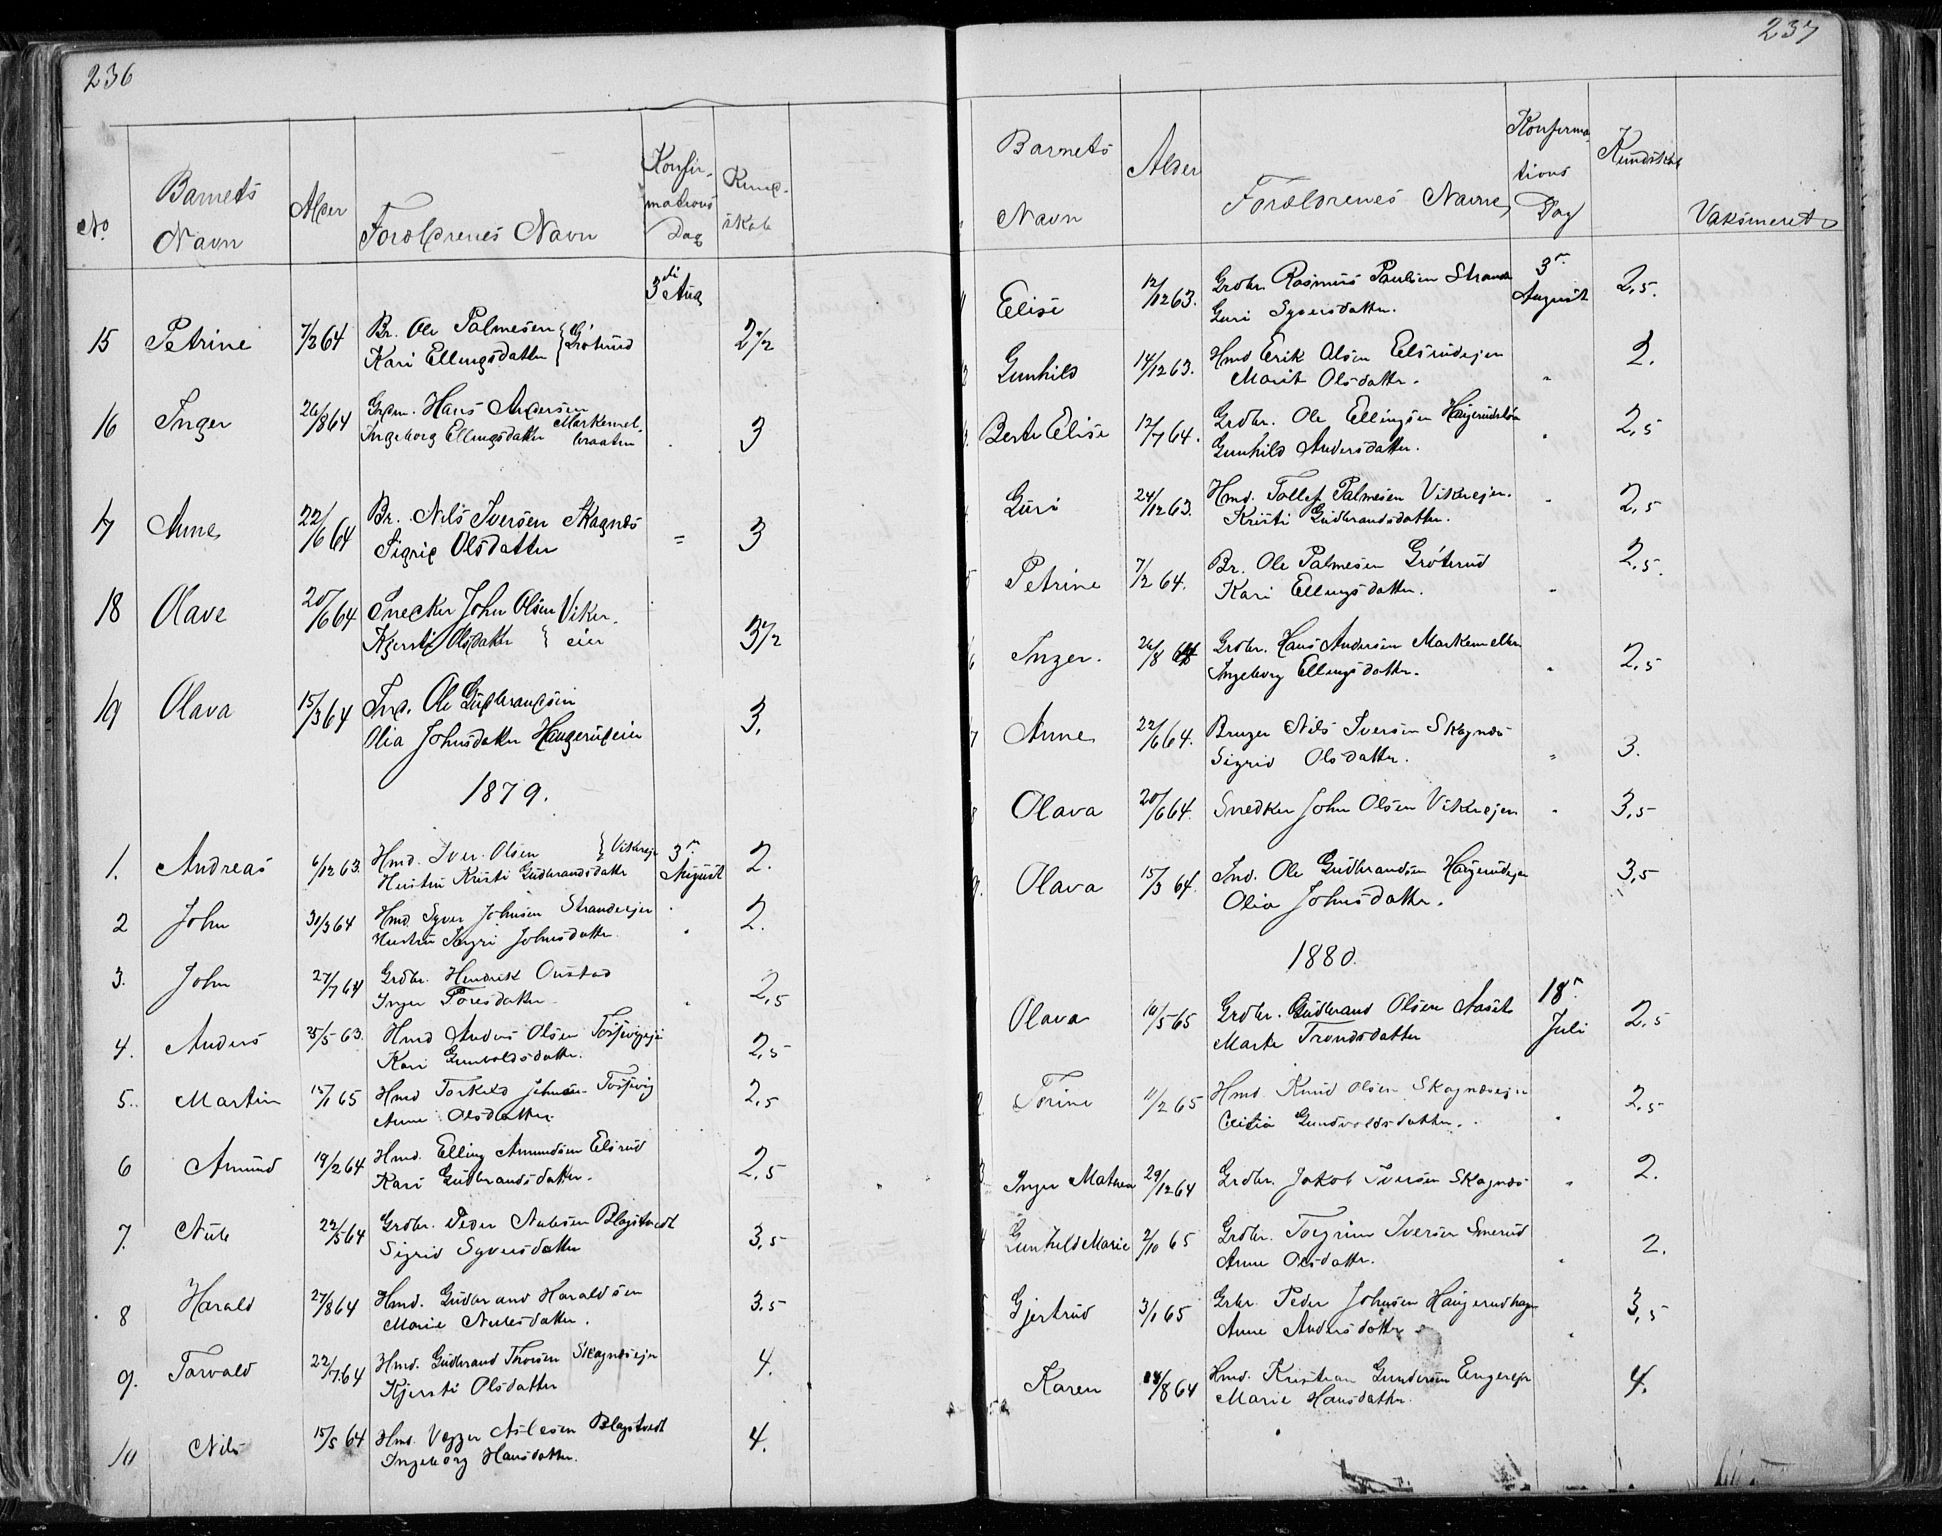 236
No. Barnets Navn Alder Forældrenes Navn Konfirmations Dag Kund-skab
3die Aug
15 Petrine 7/2 64 Br. Ole Palmesen } Grøterud
Kari Ellingsdatter 2 1/2
16 Inger 26/8 64 Grdm. Hans Andersen
Ingeborg Ellingsdatter Markemel-braaten 3
17 Anne 22/6 64 Br. Nils Iversen Skagnæs
Sigrid Olsdatter " 3
18 Olave 20/6 64 Snecker John Olsen Viker-
Kjersti Olsdatter } eier 3 1/2
19 Olava 15/3 64 Ind. Ole Gudbrandsen
Olia Johnsdatter Haugerudeier 3.
1879.
1. Andreas 6/12 63. Hmd. Iver Olsen } Vikereje 3die
Hustru Kristi Gudbrandsdatter August 2.
2 John 30/3 64 Hmd. Syver Johnsen Strandeejer
Hustru Ingri Johnsdatter " 2.
3. John 27/7 64 Grdbr. Hendrik Onstad
Inger Toresdatter " 2,5
4. Anders 25/5 63. Hmd Anders Olsen
Kari Gunvoldsdatter. 2,5
5. Martin 15/1 65 Hmd Torkild Johnsen
Anne Olsdatter 2,5
6 Amund 19/2 64 Hmd. Elling Amundsen Elsrud
Kari Gudbrandsdatter. 2,5
7. Nub 22/5 64 Grdbr. Peder Nubsen Blagstvedt
Sigrid Syversdatter 3,5
8 Harald 27/8 64 Hmd. Gudbrand Haraldsen
Marie Nubsdatter. 3,5
9. Torvald 22/7 64 Hmd. Gudbrand Thorsen Skagnæsejer
Kjersti Olsdatter 4.
10 Nils 15/5 64 Hmd. Vegger Aslesen Blagstvedt
Ingeborg Hansdatter. 4.
237
Barnets Navn Alder Forældrenes Navne Konfirma-tions Dag Kundskab Vaksineret
Elise 12/12 63. Grdbr. Rasmus Paulsen Strande 3die
Guri Syversdatter. August 2,5.
Gunhild 14/12 63. Hmd Erik Olsen Elsrudejer
Marit Olsdatter. " 2.
Berte Elise 12/7 64. Grdbr. Ole Ellingsen
Gunhild Andersdatter. " 2,5
Guri 24/12 63. Hmd. Tollef Palmesen Vikerejer.
Kristi Gudbrandsdatter. " 2,5
Petrine 7/2 64. Br. Ole Palmesen Grøterud
Kari Ellingsdatter. " 2,5.
Inger. 26/8 64 Grdbr. Hans Andersen
Ingeborg Ellingsdatter. " 2,5
Anne 22/6 64. Bruger Nils Iversen Skagnæs
Sigrid Olsdatter. " 3.
Olava 20/6 64. Snedker John Olsen Vikerejer " 3,5
Olava 15/3 64. Ind. Ole Gudbrandsen Haugerudejer
Olia Johnsdatter. 3,5
1880.
Olava 16/5 65 Grdbr. Gudbrand Olsen Aaset 18de
Marte Trondsdatter Juli 2,5
Torine 11/2 65 Hmd. Knud Olsen Skagnæsejer
Gundvoldsdatter. " 2,5
Inger Mathea 29/12 64 Grdbr. Jakob Iversen Skagnæs " 2.
Gunhild Marie 2/10 65 Grdbr. Torgrim Iversen Smerud
Anne Olsdatter. " 2.
Gjertrud 3/1 65 Grbr. Peder Johnsen Haugerudhagen
Anne Andersdatter " 3,5
Karen /8 64 Hmd. Kristian Gundersen Engerejer
Marie Hansdatter. 4.